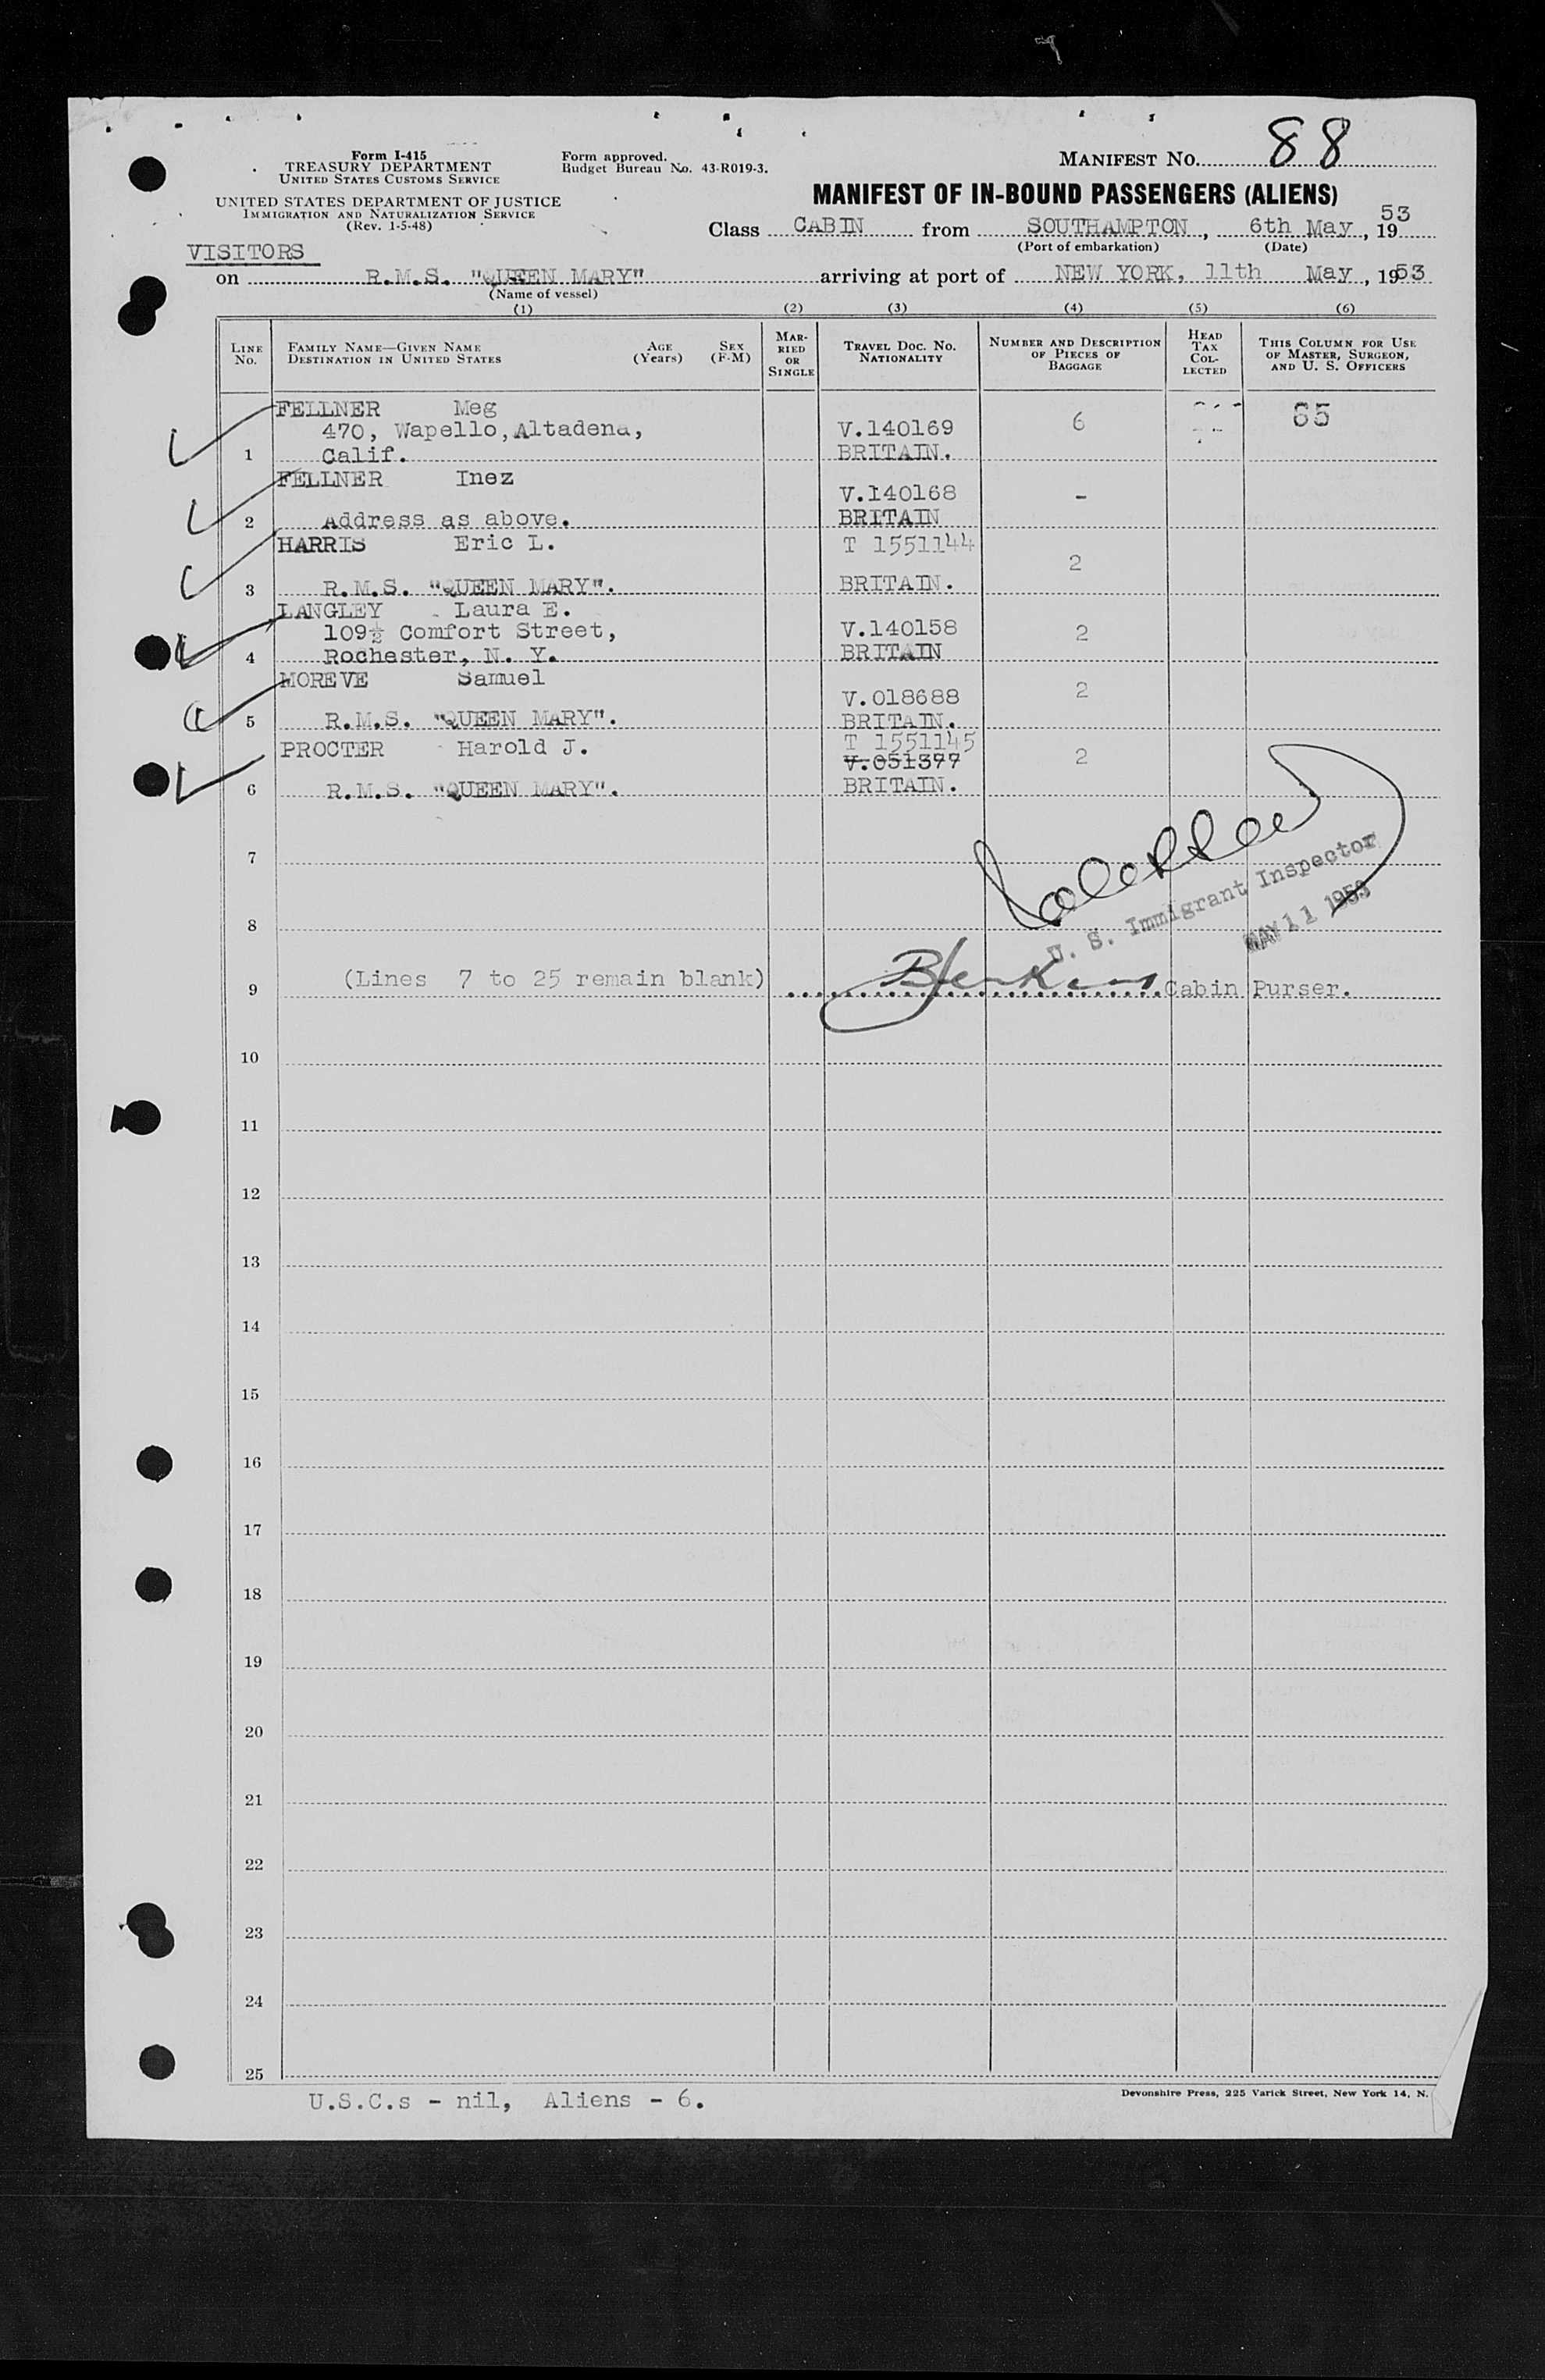 Form I-415
TREASURY DEPARTMENT
UNITED STATES CUSTOMS SERVICE
UNITED STATES DEPARTMENT OF JUSTICE
IMMIGRATION AND NATURALIZATION SERVICE
(Rev. 1-5-48)
Form approved.
Budget Bureau No. 43-R019-3.
MANIFEST NO. 88
MANIFEST OF IN-BOUND PASSENGERS (ALIENS)
Class CABIN from SOUTHAMPTON, 6th May, 1953
(Port of embarkation) (Date)
VISITORS
on R.M.S. "QUEEN MARY" arriving at port of NEW YORK, 11th May, 1953
(Name of vessel)
(1) (2) (3) (4) (5) (6)
LINE No. FAMILY NAME—GIVEN NAME DESTINATION IN UNITED STATES AGE (Years) SEX (F-M) MARRIED OR SINGLE TRAVEL DOC. NO. NATIONALITY NUMBER AND DESCRIPTION OF PIECES OF BAGGAGE HEAD TAX COLLECTED THIS COLUMN FOR USE OF MASTER, SURGEON, AND U. S. OFFICERS
FELLNER Meg 6 65
470, Wapello, Altadena, V.140169
1 Calif. BRITAIN.
FELLNER Inez
V.140168 -
2 Address as above. BRITAIN
HARRIS Eric L. T 1551144
2
3 R.M.S. "QUEEN MARY". BRITAIN.
LANGLEY Laura E.
109½ Comfort Street, V.140158 2
4 Rochester, N. Y. BRITAIN
MOREVE Samuel
V.018688 2
5 R.M.S. "QUEEN MARY". BRITAIN.
T 1551145
PROCTER Harold J. V.051377 2
6 R.M.S. "QUEEN MARY". BRITAIN.
7
8
U. S. Immigrant Inspector
MAY 11 1953
9 (Lines 7 to 25 remain blank) Cabin Purser.
10
11
12
13
14
15
16
17
18
19
20
21
22
23
24
25
U.S.C.s - nil, Aliens - 6.
Devonshire Press, 225 Varick Street, New York 14, N.